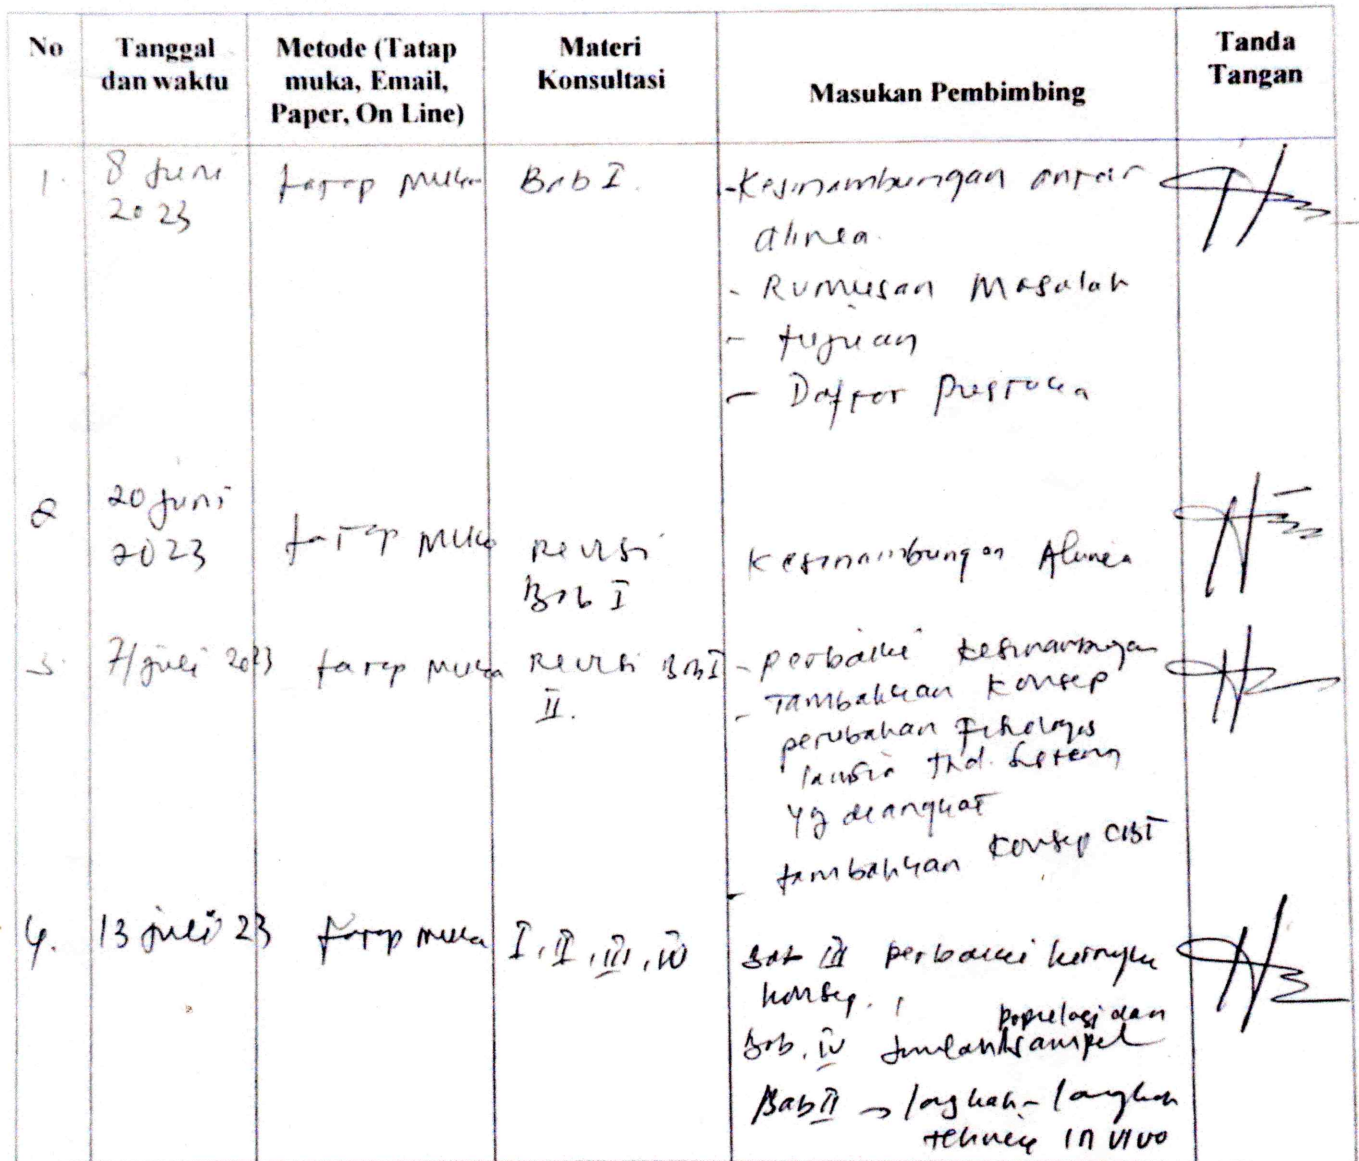 No
Tanggal
dan waktu
Metode (Tatap
muka, Email,
Paper, On Line)
Materi
Konsultasi
Masukan Pembimbing
Tanda
Tangan
1.
8 Juni
2023
tatap muka
Bab I.
- Kesinambungan antar
alinea.
- Rumusan Masalah
- tujuan
- Daftar pustaka
2
20 Juni
2023
tatap muka
Revisi
Bab I
Kesinambungan Alinea
3.
7/Juli 2023
tatap muka
Revisi Bab I
II.
- perbaiki kesinambungan
- Tambahkan Konsep
perubahan
lansia thd.
yg diangkat
- tambahkan konsep CBT
4.
13 Juli 23
tatap muka
I, II, III, IV
Bab III perbaiki kerangka
konsep.,
populasi dan
Bab. IV Jumlah sampel
Bab II → langkah-langkah
tehnik in vivo